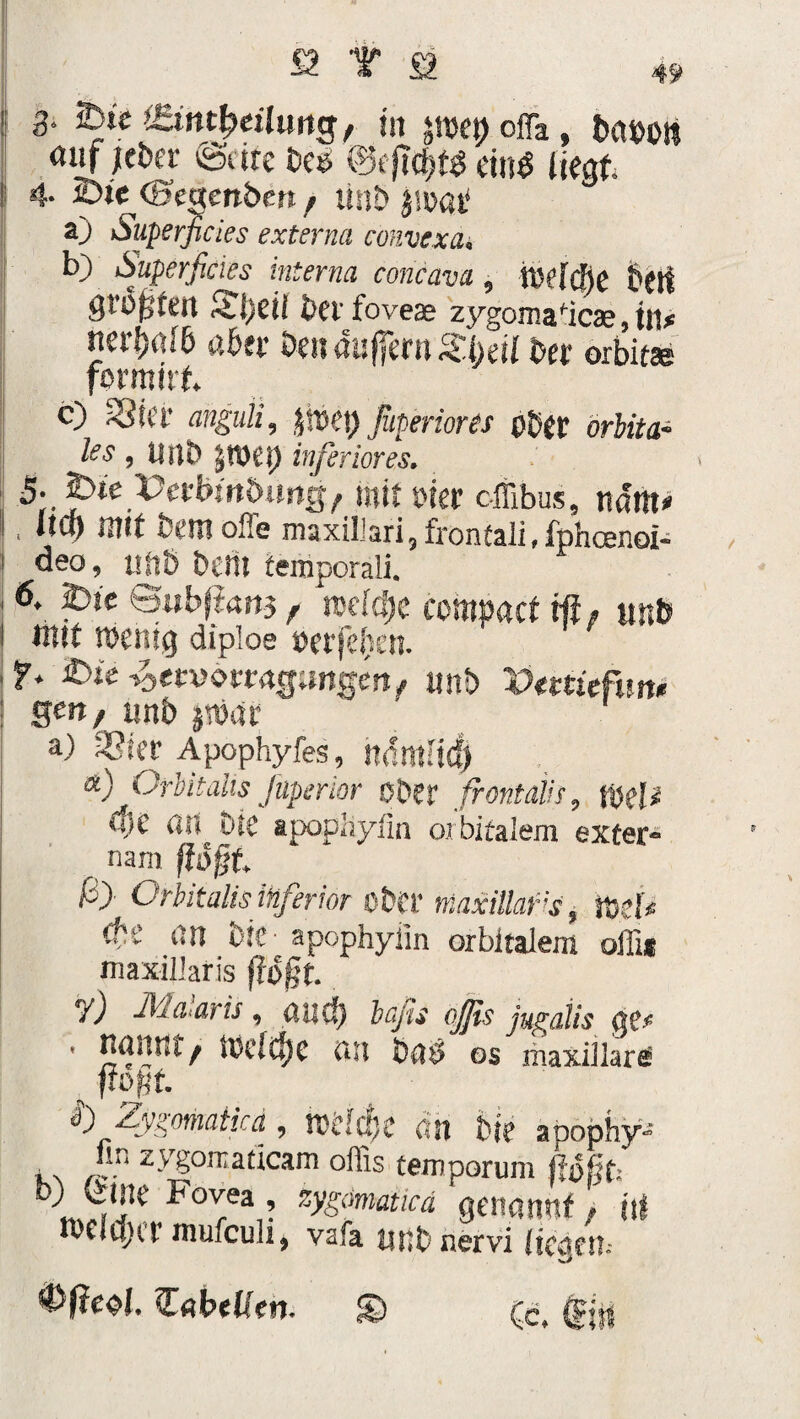 ☊ ♈ ☊ 49
3. Die Eintheilung, in zwey ossa, davon
auf jeder Seite des Gesichts eins liegt.
4. Die Gegenden, und zwar
a) Superficies externa convexa.
b) Superficies interna concava, welche den
größten Theil der foveæ zygomaticæ, in-
nerhalb aber den äussern Theil der orbitæ
formirt.
c) Vier anguli, zwey superiores oder orbita-
les, und zwey inferiores.
5. Die Verbindung, mit vier ossibus, näm-
lich mit dem osse maxillari, frontali, sphœnoi-
deo, und dem temporali.
6. Die Substanz, welche compact ist, und
mit wenig diploe versehen.
7. Die Hervorragungen, und Vertiefun-
gen, und zwar
a) Vier Apophyses, nämlich
α) Orbitalis superior oder frontalis, wel-
che an die apophysin orbitalem exter-
nam stößt.
β) Orbitalis inferior oder maxillaris, wel-
che an die apophysin orbitalem ossis
maxillaris stößt.
γ) Malaris, auch basis ossis jugalis ge-
nannt, welche an das os maxillare
stößt.
δ) Zygomatica, welche an die apophy-
sin zygomaticam ossis temporum stößt.
b) Eine Fovea, zygomatica genannt, in
welcher musculi, vasa und nervi liegen.
Osteol. Tabellen. D Cc. Ein